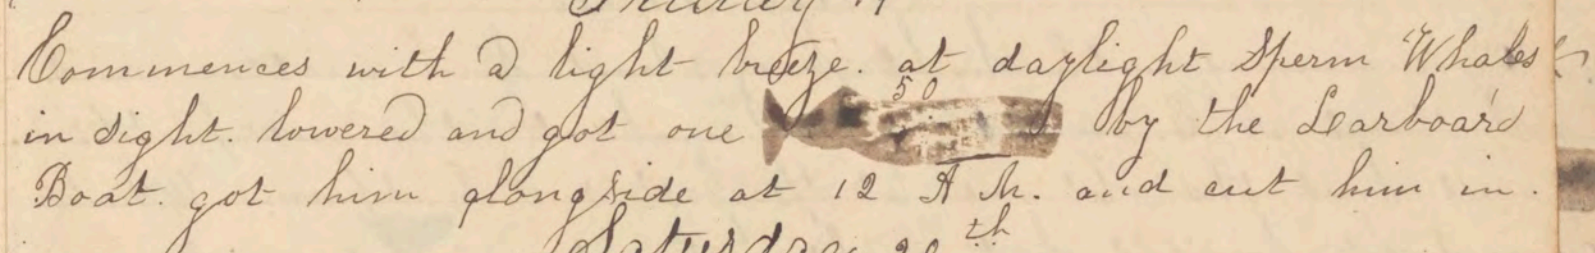 Commences with a light breeze. at daylight Sperm Whales
50
in sight. lowered and got one by the Larboard
Boat. got him alongside at 12 A M. and cut him in.
Saturday 20th